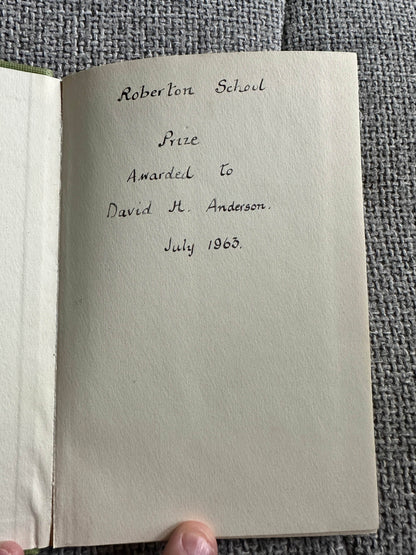 Roberton School
Prize
Awarded to
David H. Anderson.
July 1963.